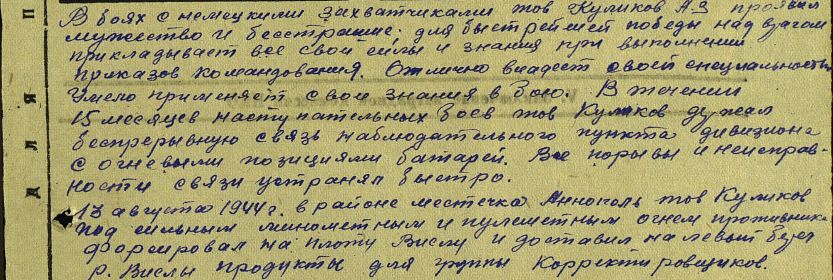 В боях с немецкими захватчиками тов Куликов А.З. проявил
мужество и бесстрашие. для быстрейшей победы над врагом
прикладывает все свои силы и знания при выполнении
приказов командования. Отлично владеет своей специальностью
Умело применяет свои знания в бою. В течении
15 месяцев наступательных боев тов Куликов держал
беспрерывную связь наблюдательного пункта дивизиона
с огневыми позициями батарей. Все порывы и неисправ-
ности связи устранял быстро.
13 августа 1944 г. в районе местечка Аннополь тов Куликов
под сильным минометным и пулеметным огнем противника
форсировал на плоту Вислу и доставил на левый берег
р. Вислы продукты для группы Корректировщиков.
д л я п